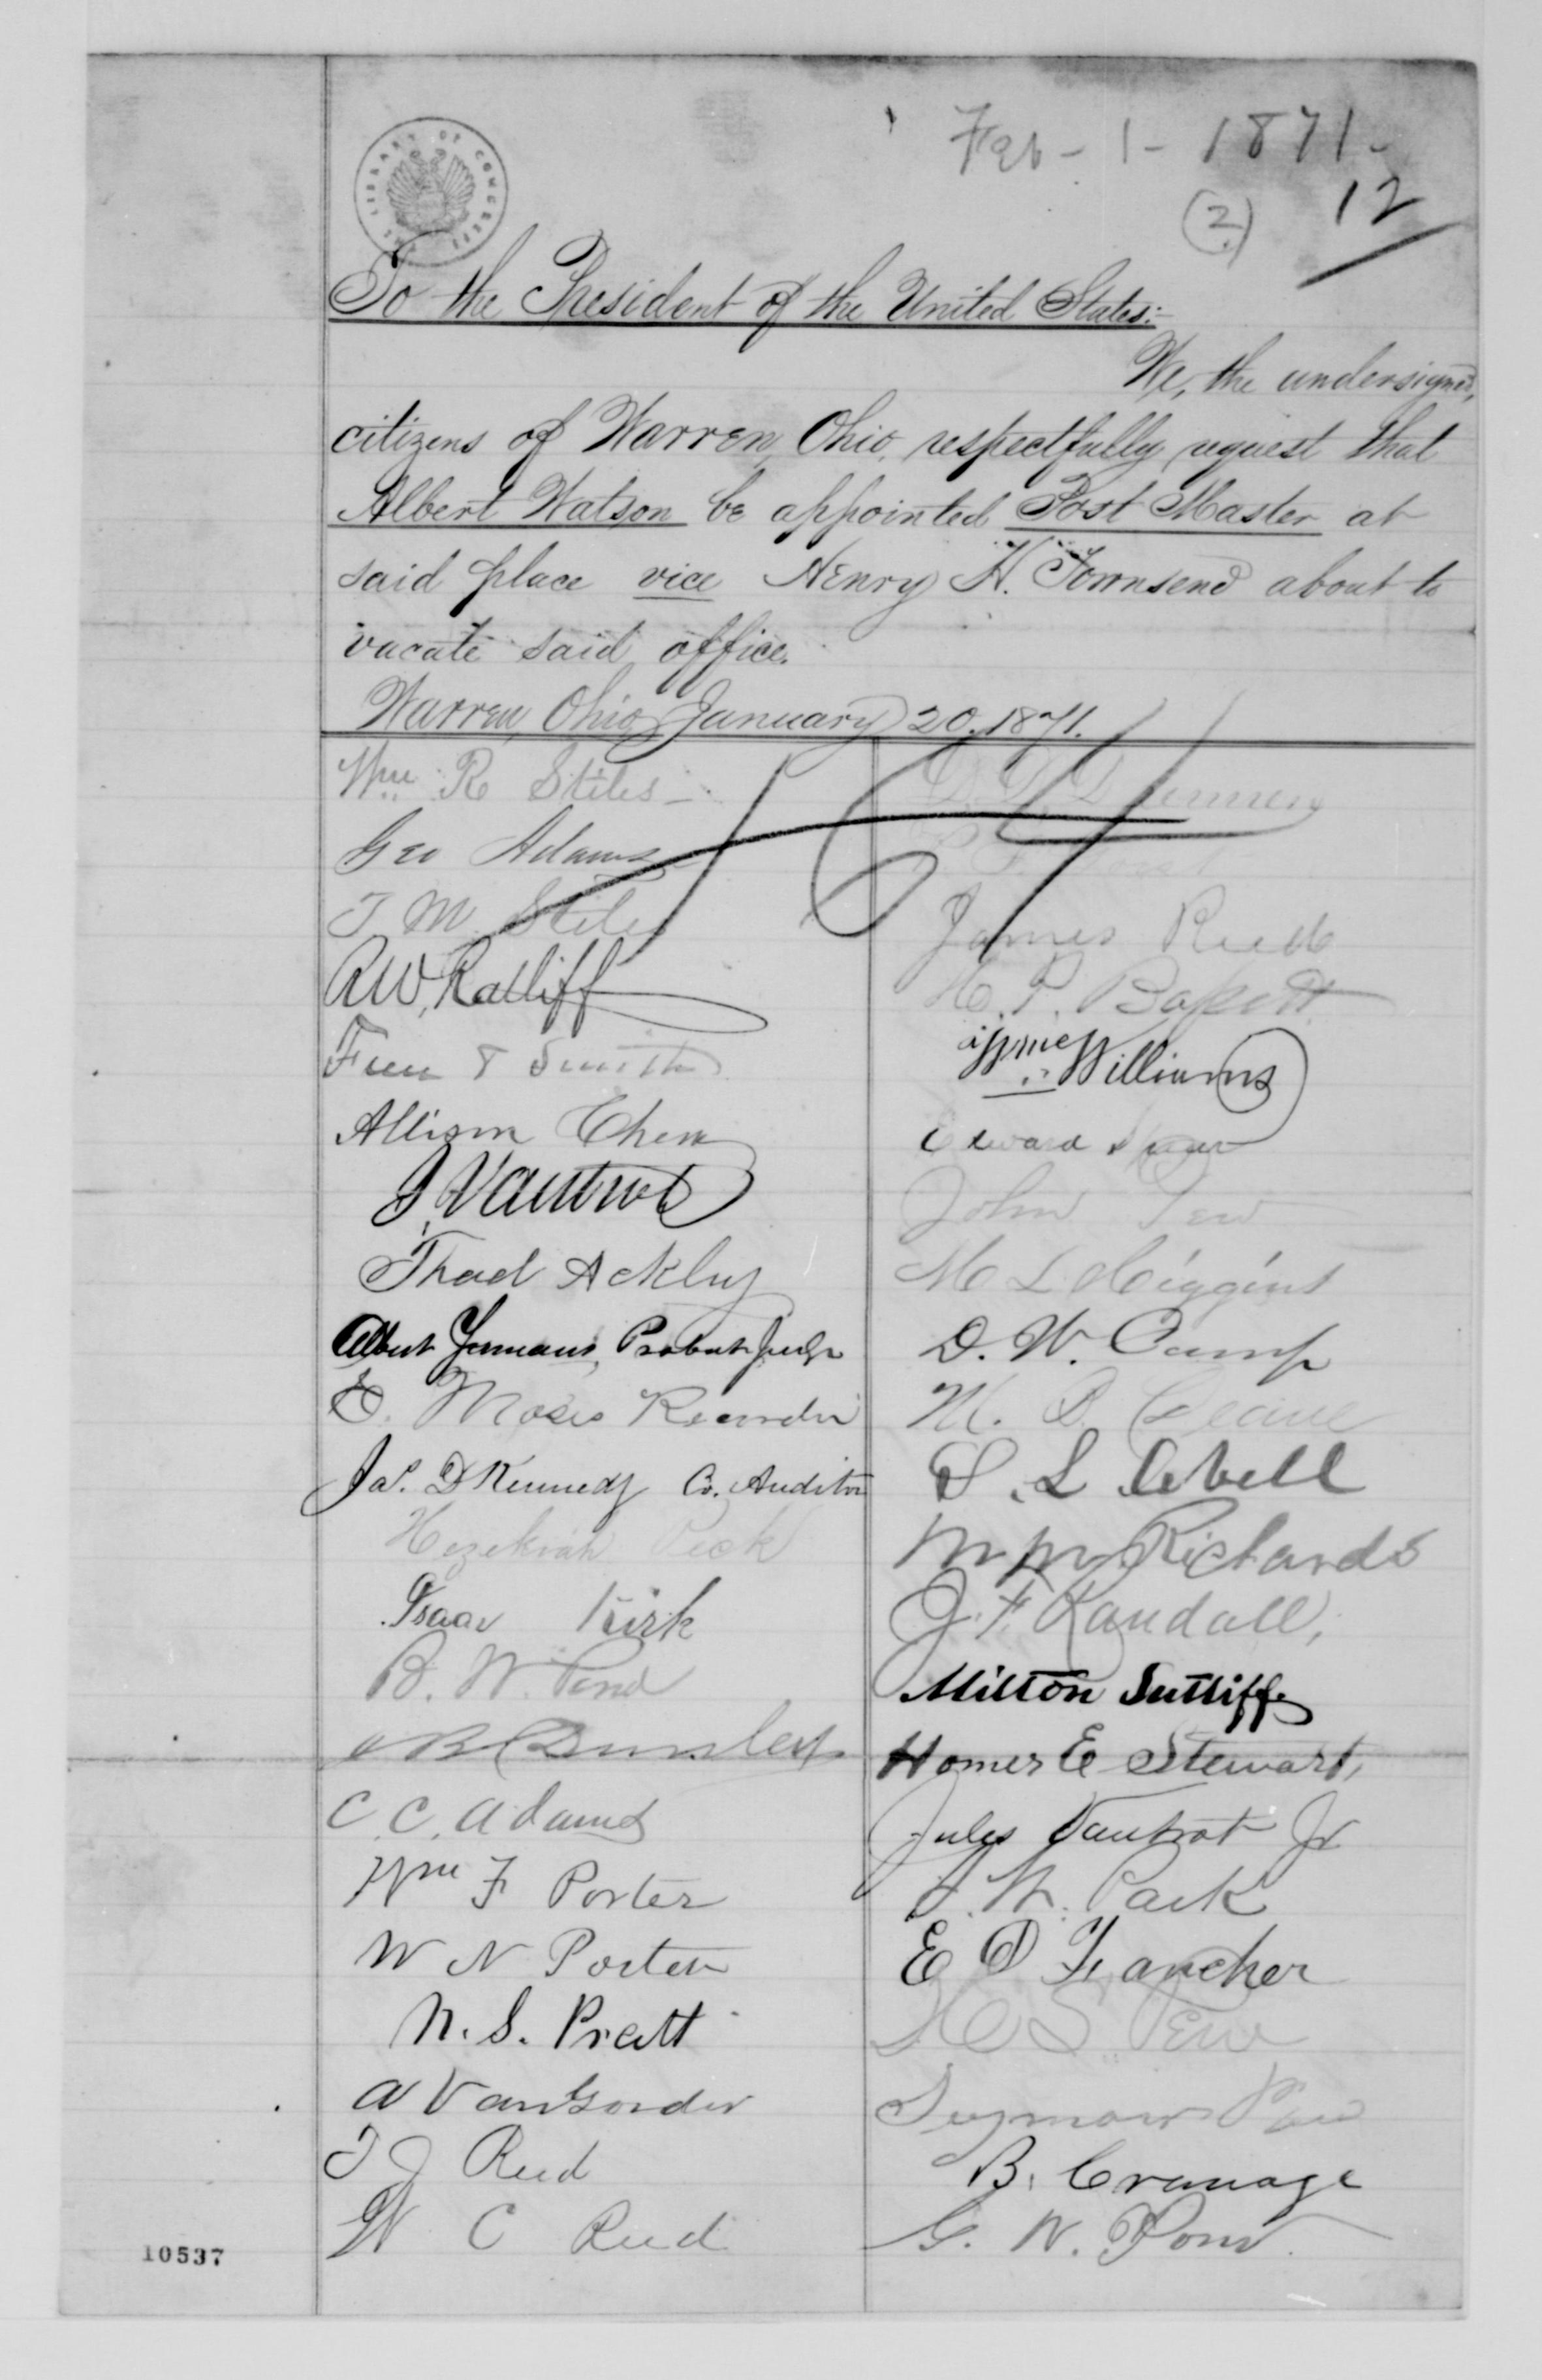 Feb - 1 - 1871 -
(2.) 12
THE LIBRARY OF CONGRESS
To the President of the United States:-
We, the undersigned,
citizens of Warren, Ohio, respectfully request that
Albert Watson be appointed Post Master at
said place vice Henry H. Townsend about to
vacate said office.
Warren, Ohio, January 20, 1871.
Wm R Stiles
Geo Adams
T. M. Stiles
R W, Ratliff
Smith
Allison
J. Vautrot
Thad Ackley
Albert Yeomans, Probate Judge
E. Moses Recorder
Jas. D Kennedy Co. Auditor
Hezekiah Peck
Isaac Kirk
B. W. Pond
C. C. Adams
Wm F Porter
W N Porter
N. S. Pratt
A VanGorder
T J Reed
W C Reed
James Reed
H. P.
Wm Williams
Edward
John Pew
M L Higgins
D. W. Camp
S. L Abell
Richards
J. F. Randall,
Milton Sutliff
Homer E Stewart,
Jules Vautrot Jr
Park
E D Fancher
H S Pew
Seymour
B. Cranage
G. W. Pond
10537